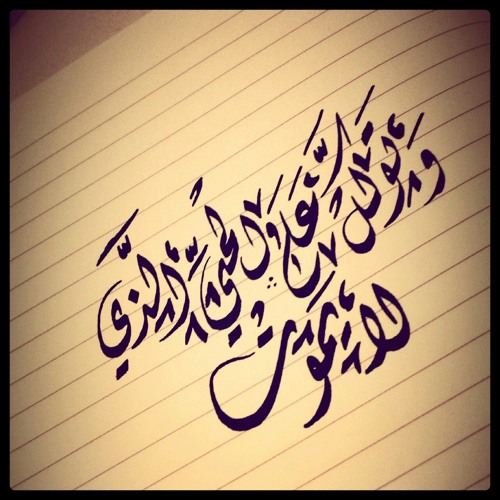 وتوكل على الحي الذي
لا يموت